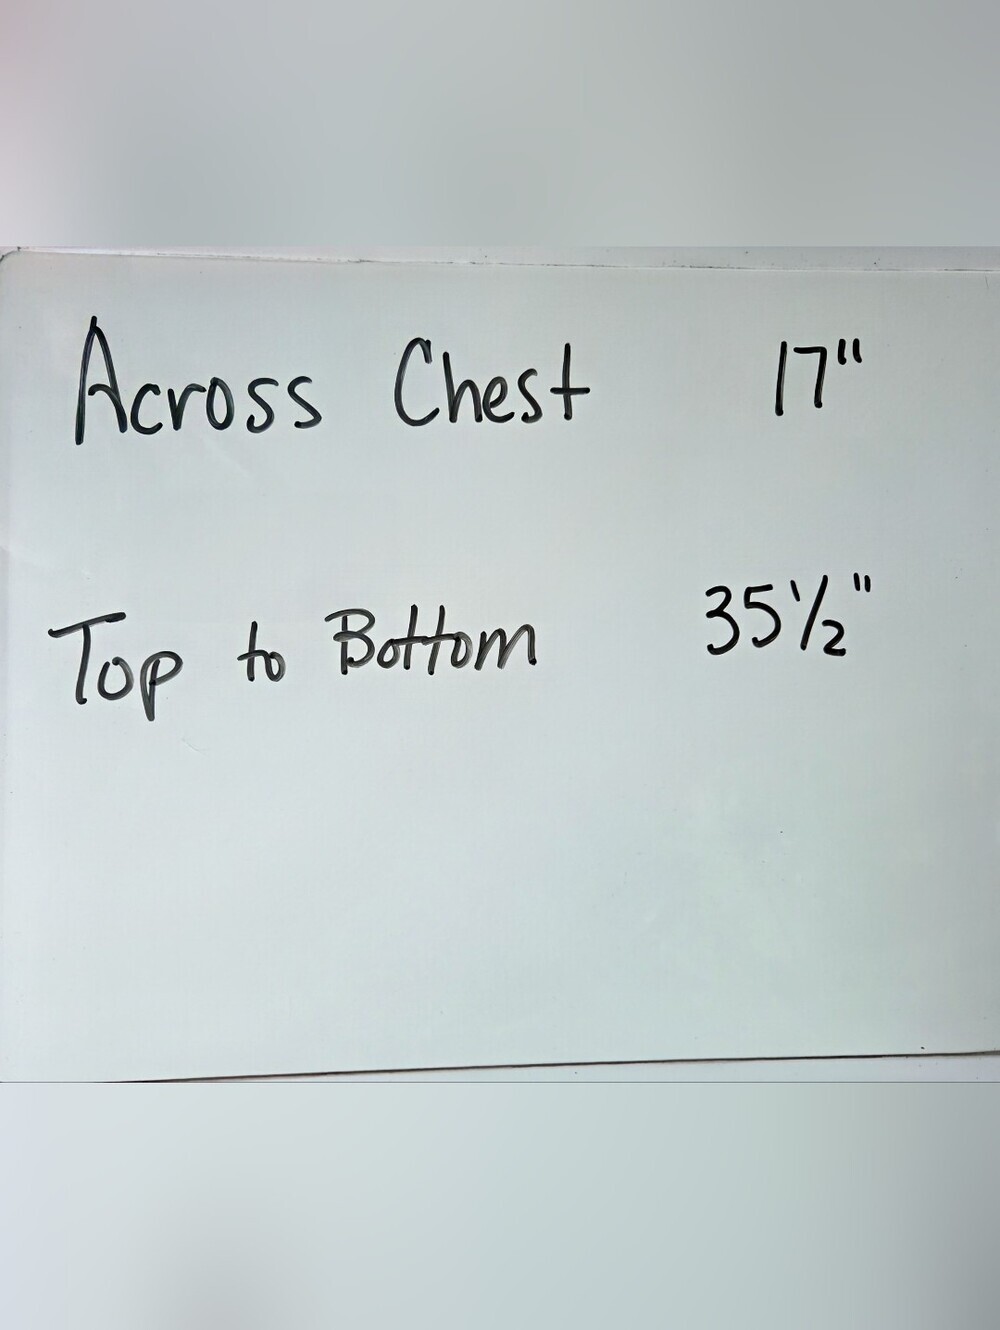 Across Chest 17"
Top to Bottom 35 1/2"